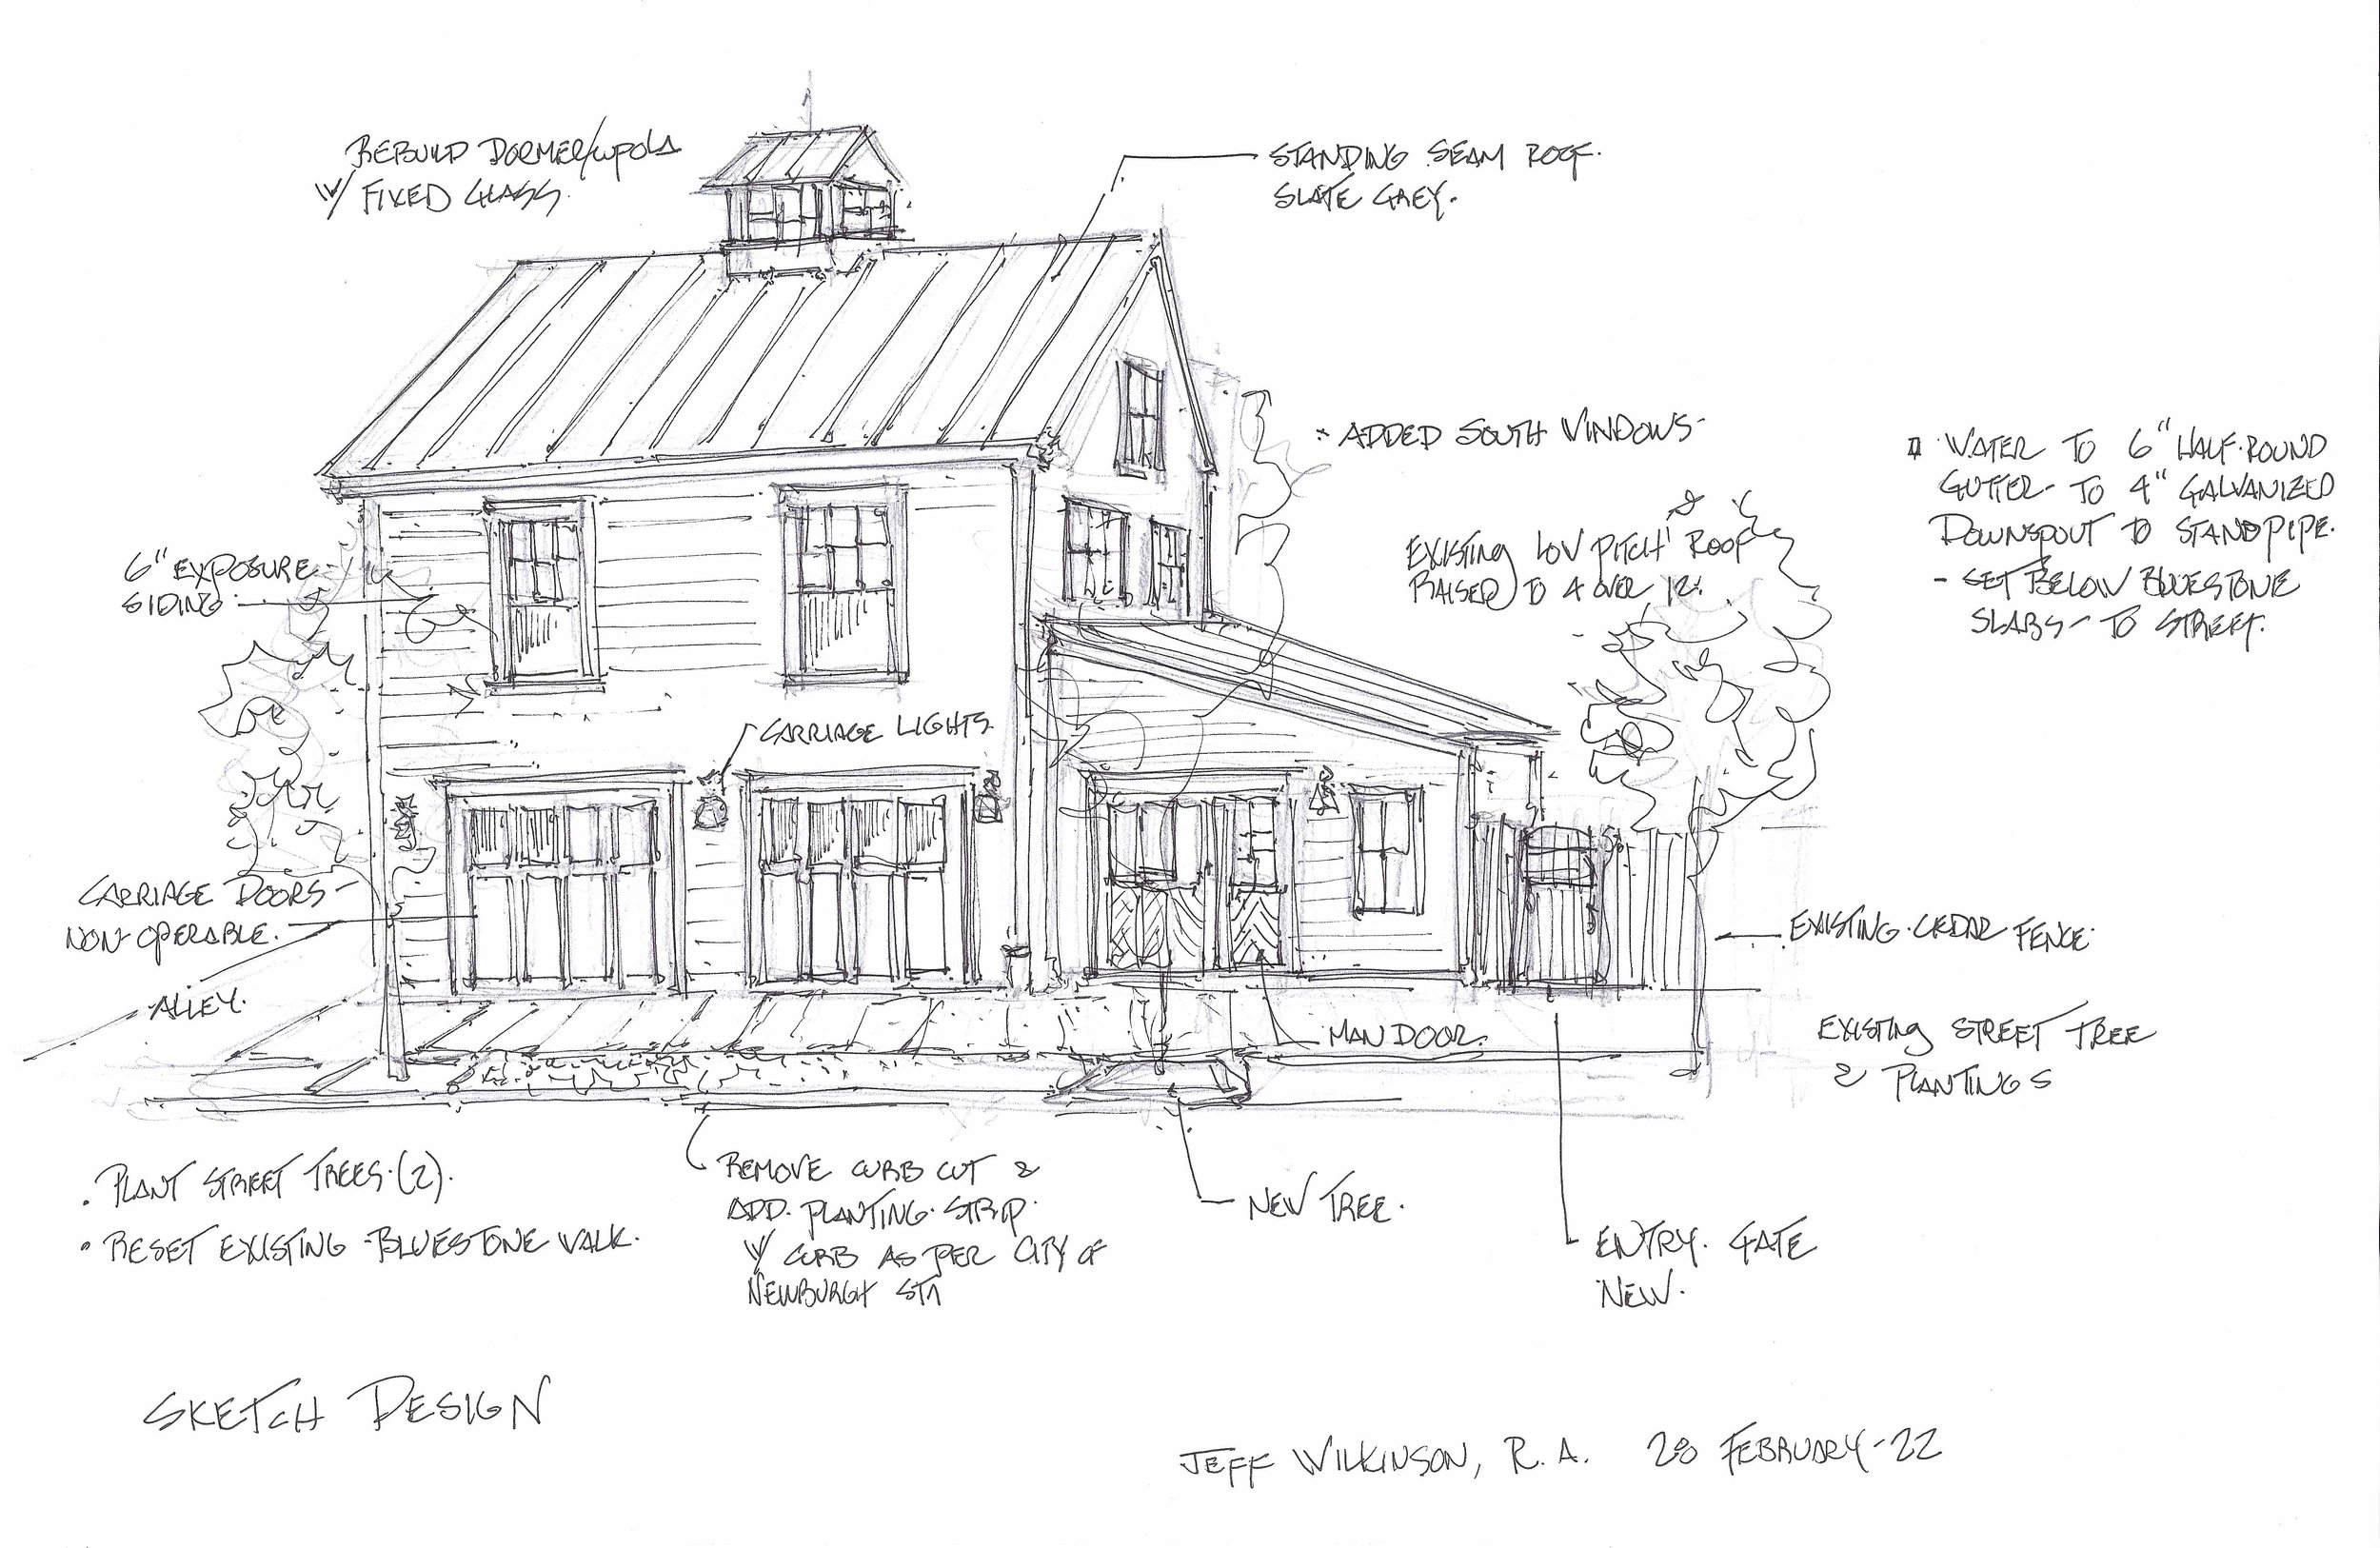 REBUILD DORMER/CUPOLA
W/ FIXED GLASS.
STANDING SEAM ROOF.
SLATE GREY.
ADDED SOUTH WINDOWS-
WATER TO 6" HALF-ROUND
GUTTER- TO 4" GALVANIZED
DOWNSPOUT TO STANDPIPE.
- SET BELOW BLUESTONE
SLABS- TO STREET.
EXISTING LOW PITCH ROOF
RAISED TO 4 OVER 12.
6" EXPOSURE
SIDING
CARRIAGE LIGHTS.
CARRIAGE DOORS-
NON-OPERABLE.
ALLEY.
EXISTING CEDAR FENCE
MAN DOOR.
EXISTING STREET TREE
& PLANTINGS
• PLANT STREET TREES (2).
• RESET EXISTING BLUESTONE WALK.
REMOVE CURB CUT &
ADD PLANTING STRIP.
W/ CURB AS PER CITY OF
NEWBURGH
NEW TREE.
ENTRY GATE
NEW.
SKETCH DESIGN
JEFF WILKINSON, R.A. 28 FEBRUARY-22